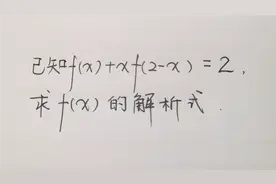 已知f(x)+xf(2-x)=2,
求f(x)的解析式.